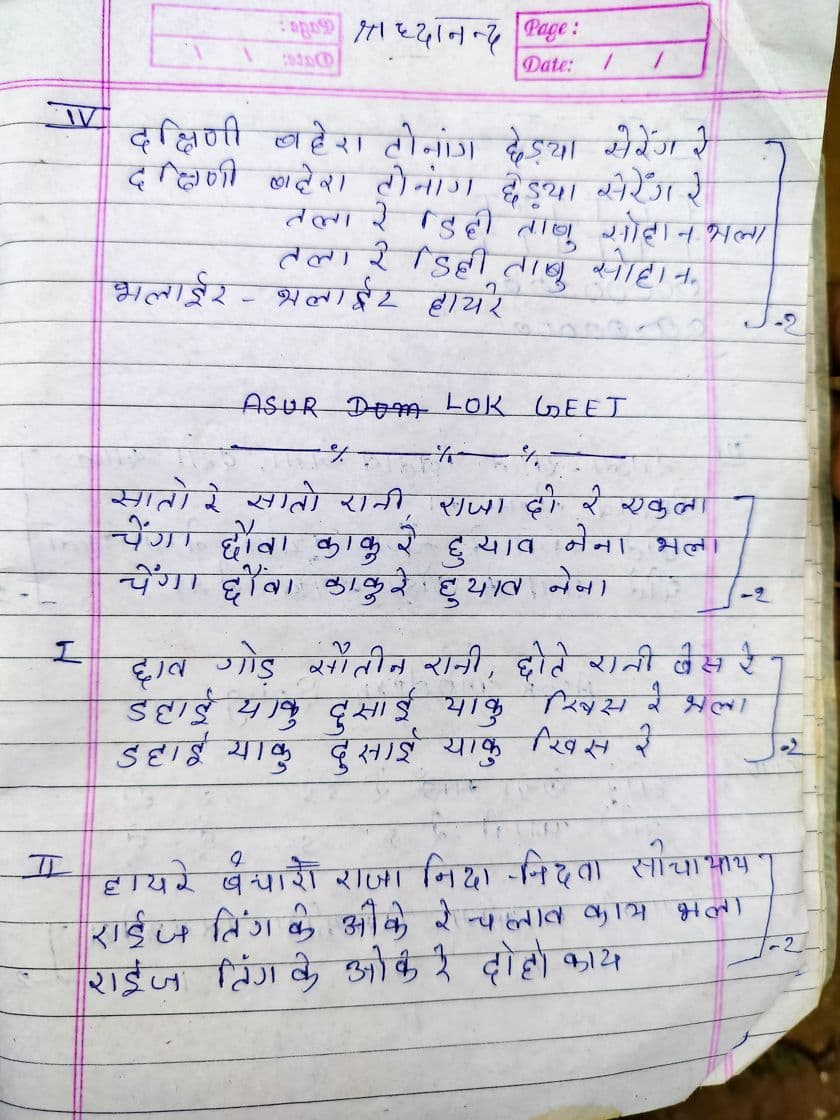 श्रध्दानन्द
Page:
Date: / /
IV
दक्षिणी बहेरा तोनांग छेड़या सेरेंग रे
दक्षिणी बहेरा तोनांग छेड़या सेरेंग रे
तला रे डिही ताबु सोहान भला
तला रे डिही ताबु सोहान.
भलाईर - भलाईर हायरे
-2
ASUR LOK GEET
सातो रे सातो रानी, राजा दो रे एकला
चेंगा छौवा काकु रे दुयाव नेना भला
चेंगा छौंवा काकुरे दुयाव नेना
-2
I
छाव गोड सौतीन रानी, छोते रानी बेस रे
डहाई याकु दुसाई याकु खिस रे भला
डहाई याकु दुसाई याकु खिस रे
-2
II
हायरे बेचारो राजा निदा-निदता सोचायाय
राईज तिंग के ओके रे चलाव काय भला
राईज तिंग के ओके रे दोहो काय
-2